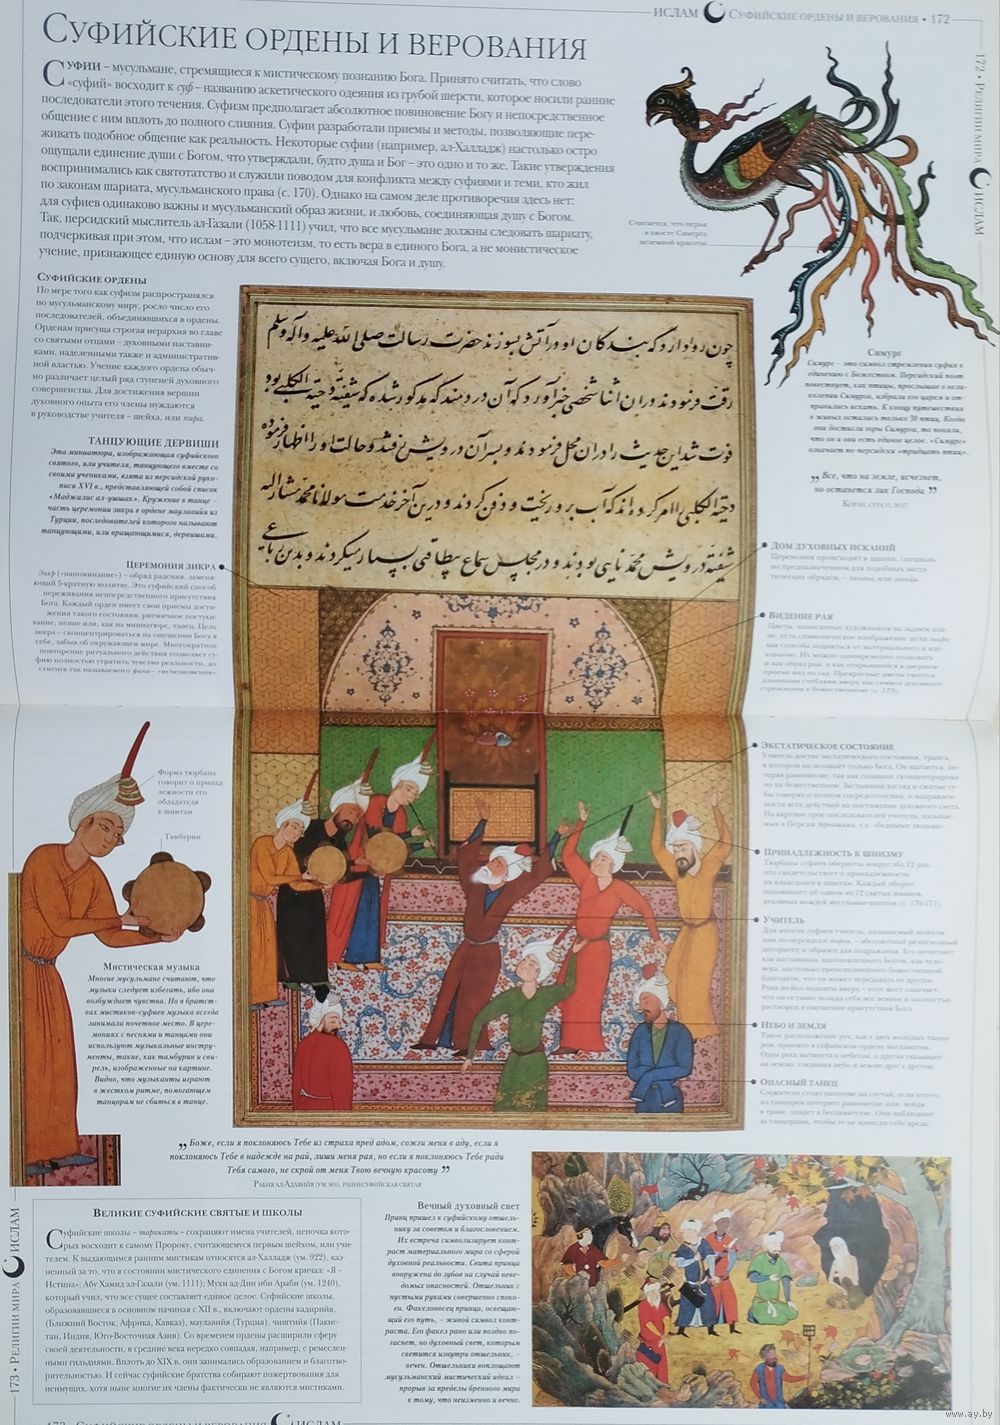 ИСЛАМ СУФИЙСКИЕ ОРДЕНЫ И ВЕРОВАНИЯ • 172
172 • РЕЛИГИИ МИРА ИСЛАМ
СУФИЙСКИЕ ОРДЕНЫ И ВЕРОВАНИЯ
СУФИИ – мусульмане, стремящиеся к мистическому познанию Бога. Принято считать, что слово
«суфий» восходит к суф – названию аскетического одеяния из грубой шерсти, которое носили ранние
последователи этого течения. Суфизм предполагает абсолютное повиновение Богу и непосредственное
общение с ним вплоть до полного слияния. Суфии разработали приемы и методы, позволяющие пере-
живать подобное общение как реальность. Некоторые суфии (например, ал-Халладж) настолько остро
ощущали единение души с Богом, что утверждали, будто душа и Бог – это одно и то же. Такие утверждения
воспринимались как святотатство и служили поводом для конфликта между суфиями и теми, кто жил
по законам шариата, мусульманского права (с. 170). Однако на самом деле противоречия здесь нет:
для суфиев одинаково важны и мусульманский образ жизни, и любовь, соединяющая душу с Богом.
Так, персидский мыслитель ал-Газали (1058-1111) учил, что все мусульмане должны следовать шариату,
подчеркивая при этом, что ислам – это монотеизм, то есть вера в единого Бога, а не монистическое
учение, признающее единую основу для всего сущего, включая Бога и душу.
Считается, что перья
в хвосте Симурга
неземной красоты
СУФИЙСКИЕ ОРДЕНЫ
По мере того как суфизм распространялся
по мусульманскому миру, росло число его
последователей, объединявшихся в ордены.
Орденам присуща строгая иерархия во главе
со святыми отцами – духовными наставни-
ками, наделенными также и административ-
ной властью. Учение каждого ордена обыч-
но различает целый ряд ступеней духовного
совершенства. Для достижения вершин
духовного опыта его члены нуждаются
в руководстве учителя – шейха, или пира.
ТАНЦУЮЩИЕ ДЕРВИШИ
Эта миниатюра, изображающая суфийского
святого, или учителя, танцующего вместе со
своими учениками, взята из персидской руко-
писи XVI в., представляющей собой список
«Маджалис ал-ушшак». Кружение в танце –
часть церемонии зикра в ордене маулавийя из
Турции, последователей которого называют
танцующими, или вращающимися, дервишами.
ЦЕРЕМОНИЯ ЗИКРА
Зикр («напоминание») – обряд радения, заменя-
ющий 5-кратную молитву. Это суфийский способ
переживания непосредственного присутствия
Бога. Каждый орден имеет свои приемы дости-
жения такого состояния: ритмичное постуки-
вание, пение или, как на миниатюре, танец. Цель
зикра – сконцентрироваться на ощущении Бога в
себе, забыв об окружающем мире. Многократное
повторение ритуального действия позволяет су-
фию полностью утратить чувство реальности, до-
стигнув так называемого фана – «исчезновения».
Симург
Симург – это символ стремления суфия к
единению с Божеством. Персидский поэт
повествует, как птицы, прослышав о вели-
колепии Симурга, избрали его царем и от-
правились искать. К концу путешествия
в живых остались только 30 птиц. Когда
они достигли горы Симурга, то поняли,
что он и они есть единое целое. «Симург»
означает по-персидски «тридцать птиц».
„Все, что на земле, исчезнет,
но останется лик Господа”
КОРАН, СУРА 55, 26-27
ДОМ ДУХОВНЫХ ИСКАНИЙ
Церемония происходит в здании, специаль-
но предназначенном для подобных мисти-
ческих обрядов,
ВИДЕНИЕ РАЯ
Цветы, написанные художником на заднем пла-
не, есть символическое изображение цели зикра
как способа подняться от материального к иде-
альному. Их можно одновременно толковать
и как образ рая, и как открывшийся в дверном
проеме вид на сад. Прекрасные цветы тянутся
стремления к божественному (с. 175).
ЭКСТАТИЧЕСКОЕ СОСТОЯНИЕ
Учитель достиг экстатического состояния, транса,
в котором он осознаёт только Бога. Он шатается, по-
теряв равновесие, так как сознание сконцентрирова-
но на божественном. Застывший взгляд и сжатые гу-
бы говорят о полном сосредоточении, о направлен-
ности всех действий на постижение духовного света.
На картине трое последователей учителя, называе-
мых в Персии дервишами, т. е. «бедными людьми».
ПРИНАДЛЕЖНОСТЬ К ШИИЗМУ
Тюрбаны суфиев обернуты вокруг лба 12 раз,
что свидетельствует о принадлежности
их владельцев к шиитам. Каждый оборот
напоминает об одном из 12 святых имамов,
духовных вождей мусульман-шиитов (с. 170-171).
УЧИТЕЛЬ
Для многих суфиев учитель, называемый шейхом
или по-персидски пиром, – абсолютный религиозный
авторитет и образец для подражания. Его почитают
как наставника, вдохновленного Богом, как чело-
века, настолько преисполненного божественной
благодати, что он может передавать ее другим.
Руки шейха подняты вверх – этот жест означает,
что он оставил позади себя все земное и полностью
растворен в ощущении присутствия Бога.
НЕБО И ЗЕМЛЯ
Такое расположение рук, как у двух молодых танцо-
ров, принято в суфийском ордене маулавитов.
Одна рука вытянута к небесам, а другая указывает
на землю, соединяя небо и землю друг с другом.
ОПАСНЫЙ ТАНЕЦ
Служители стоят наготове на случай, если кто-то
из танцоров потеряет равновесие или, войдя
в транс, упадет в беспамятстве. Они наблюдают
за танцорами, чтобы те не нанесли себе вреда.
Форма тюрбана
говорит о принад
лежности его
обладателя
к шиитам
Тамбурин
Мистическая музыка
Многие мусульмане считают, что
музыки следует избегать, ибо она
возбуждает чувства. Но в братст-
вах мистиков-суфиев музыка всегда
занимала почетное место. В цере-
мониях с песнями и танцами они
используют музыкальные инстру-
менты, такие, как тамбурин и сви-
рель, изображенные на картине.
Видно, что музыканты играют
в жестком ритме, помогающем
танцорам не сбиться в танце.
„Боже, если я поклоняюсь Тебе из страха пред адом, сожги меня в аду, если я
поклоняюсь Тебе в надежде на рай, лиши меня рая, но если я поклоняюсь Тебе ради
Тебя самого, не скрой от меня Твою вечную красоту”
РАБИЯ АЛ-АДАВИЙЯ (УМ. 801), РАННЕСУФИЙСКАЯ СВЯТАЯ
ВЕЛИКИЕ СУФИЙСКИЕ СВЯТЫЕ И ШКОЛЫ
Суфийские школы – тарикаты – сохраняют имена учителей, цепочка кото-
рых восходит к самому Пророку, считающемуся первым шейхом, или учи-
телем. К выдающимся ранним мистикам относятся ал-Халладж (ум. 922), каз-
ненный за то, что в состоянии мистического единения с Богом кричал: «Я –
Истина»; Абу Хамид ал-Газали (ум. 1111); Мухи ад-Дин ибн Араби (ум. 1240),
который учил, что все сущее составляет единое целое. Суфийские школы,
образовавшиеся в основном начиная с XII в., включают ордены кадирийя,
(Ближний Восток, Африка, Кавказ), маулавийя (Турция), чиштийя (Пакис-
тан, Индия, Юго-Восточная Азия). Со временем ордены расширили сферу
своей деятельности, в средние века нередко совпадая, например, с ремеслен-
ными гильдиями. Вплоть до XIX в. они занимались образованием и благотво-
рительностью. И сейчас суфийские братства собирают пожертвования для
неимущих, хотя ныне многие их члены фактически не являются мистиками.
Вечный духовный свет
Принц пришел к суфийскому отшель-
нику за советом и благословением.
Их встреча символизирует конт-
раст материального мира со сферой
духовной реальности. Свита принца
вооружена до зубов на случай неве-
домых опасностей. Отшельник с
пустыми руками совершенно споко-
ен. Факелоносец принца, освещаю-
щий его путь, – живой символ конт-
раста. Его факел рано или поздно по-
гаснет, но духовный свет, которым
светится изнутри отшельник, –
вечен. Отшельники воплощают
мусульманский мистический идеал –
прорыв за пределы бренного мира
к тому, что неизменно и вечно.
173 • РЕЛИГИИ МИРА ИСЛАМ
173 • СУФИЙСКИЕ ОРДЕНЫ И ВЕРОВАНИЯ ИСЛАМ
www.ay.by